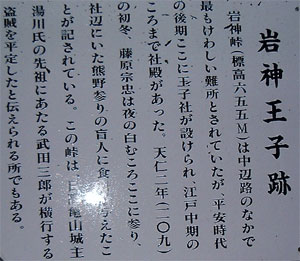 岩神王子跡
岩神峠(標高六五五M)は中辺路のなかで
最もけわしい難所とされていたが、平安時代
の後期ここに王子社が設けられ、江戸中期の
ころまで社殿があった。天仁二年(一一〇九)
の初冬、藤原宗忠は夜の白むころここに参り、
社辺にいた熊野参りの盲人に食
与えたこ
とが記されている。この峠は、
亀山城主
湯川氏の先祖にあたる武田三郎が横行する
盗賊を平定したと伝えられる所でもある。